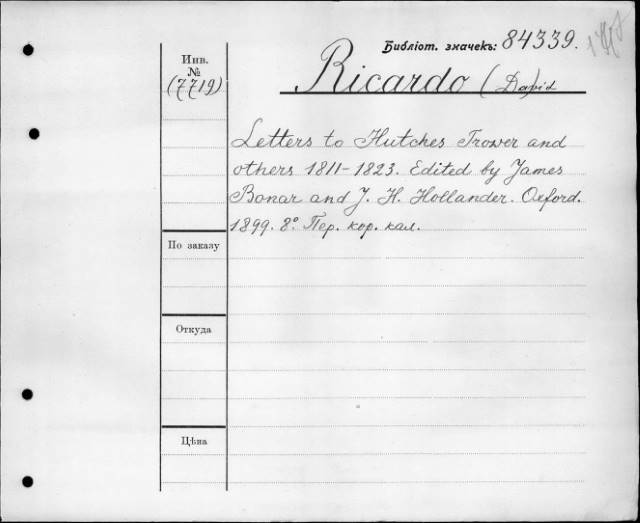 Библіот. значекъ: 84339.
Инв.
№
(7719)
Ricardo (David
Letters to Hutches Trower and
others 1811-1823. Edited by James
Bonar and J. H. Hollander. Oxford.
1899. 8°. Пер. кор. кал.
По заказу
Откуда
Цѣна